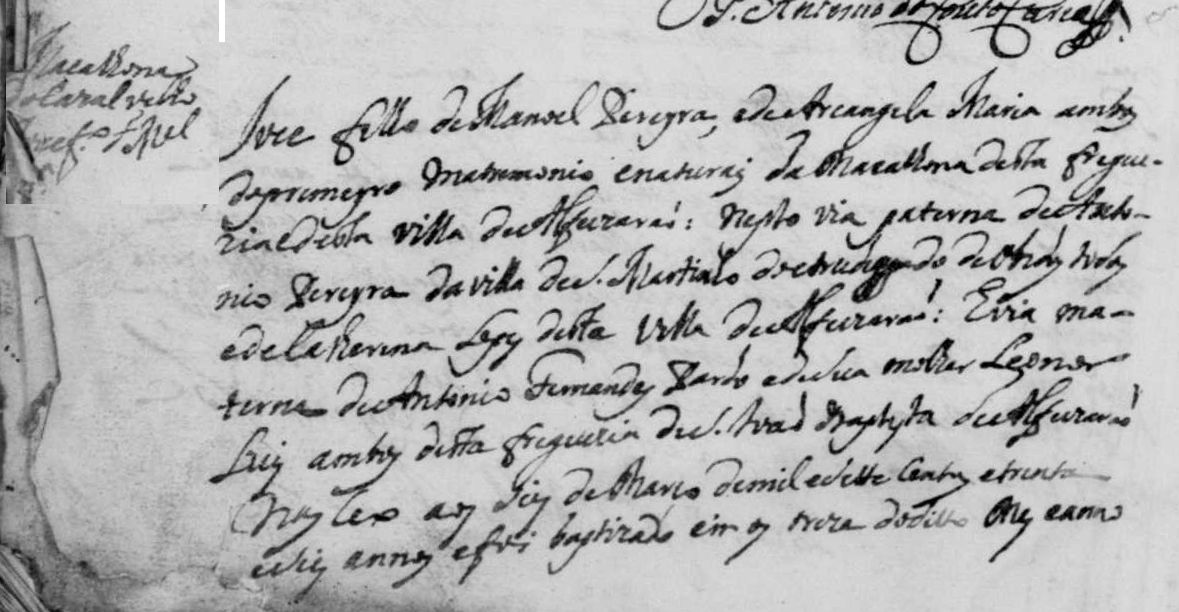 P. Antonio do Couto
Macalhona
do Caza velho
Joze fº de Mel
Joze filho de Manoel Pereyra, e de Arcangela Maria ambos
de primeyro matrimonio e naturais da Macalhona desta fregue-
zia e desta villa de Alfeizaraõ: Nepto via paterna de Anto-
nio Pereyra da villa de S. Martinho do de Obidos
e de Catherina Lopes desta villa de Alfeizaraõ: E via ma-
terna de Antonio Fernandes Pardo e de sua molher Leonor
Luis ambos desta freguezia de S. Joaõ Baptista de Alfeizaraõ
Nasceo aos seis de Março de mil e sette centos e trinta
e seis annos e foi baptizado em os treze do ditto mes e anno